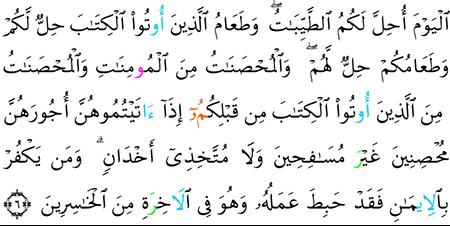 اَلْيَوْمَ أُحِلَّ لَكُمُ الطَّيِّبَٰتُۖ وَطَعَامُ الَّذِينَ أُوتُواْ الْكِتَٰبَ حِلٌّ لَّكُمْ
وَطَعَامُكُمْ حِلٌّ لَّهُمْۖ وَالْمُحْصَنَٰتُ مِنَ الْمُومِنَٰتِ وَالْمُحْصَنَٰتُ
مِنَ الَّذِينَ أُوتُواْ الْكِتَٰبَ مِن قَبْلِكُمُۥٓ إِذَآ ءَاتَيْتُمُوهُنَّ أُجُورَهُنَّ
مُحْصِنِينَ غَيْرَ مُسَٰفِحِينَ وَلَا مُتَّخِذِىٓ أَخْدَانٍۗ وَمَن يَكْفُرْ
بِالِايمَٰنِ فَقَدْ حَبِطَ عَمَلُهُۥ وَهُوَ فِى الَاخِرَةِ مِنَ الْخَٰسِرِينَ ٦